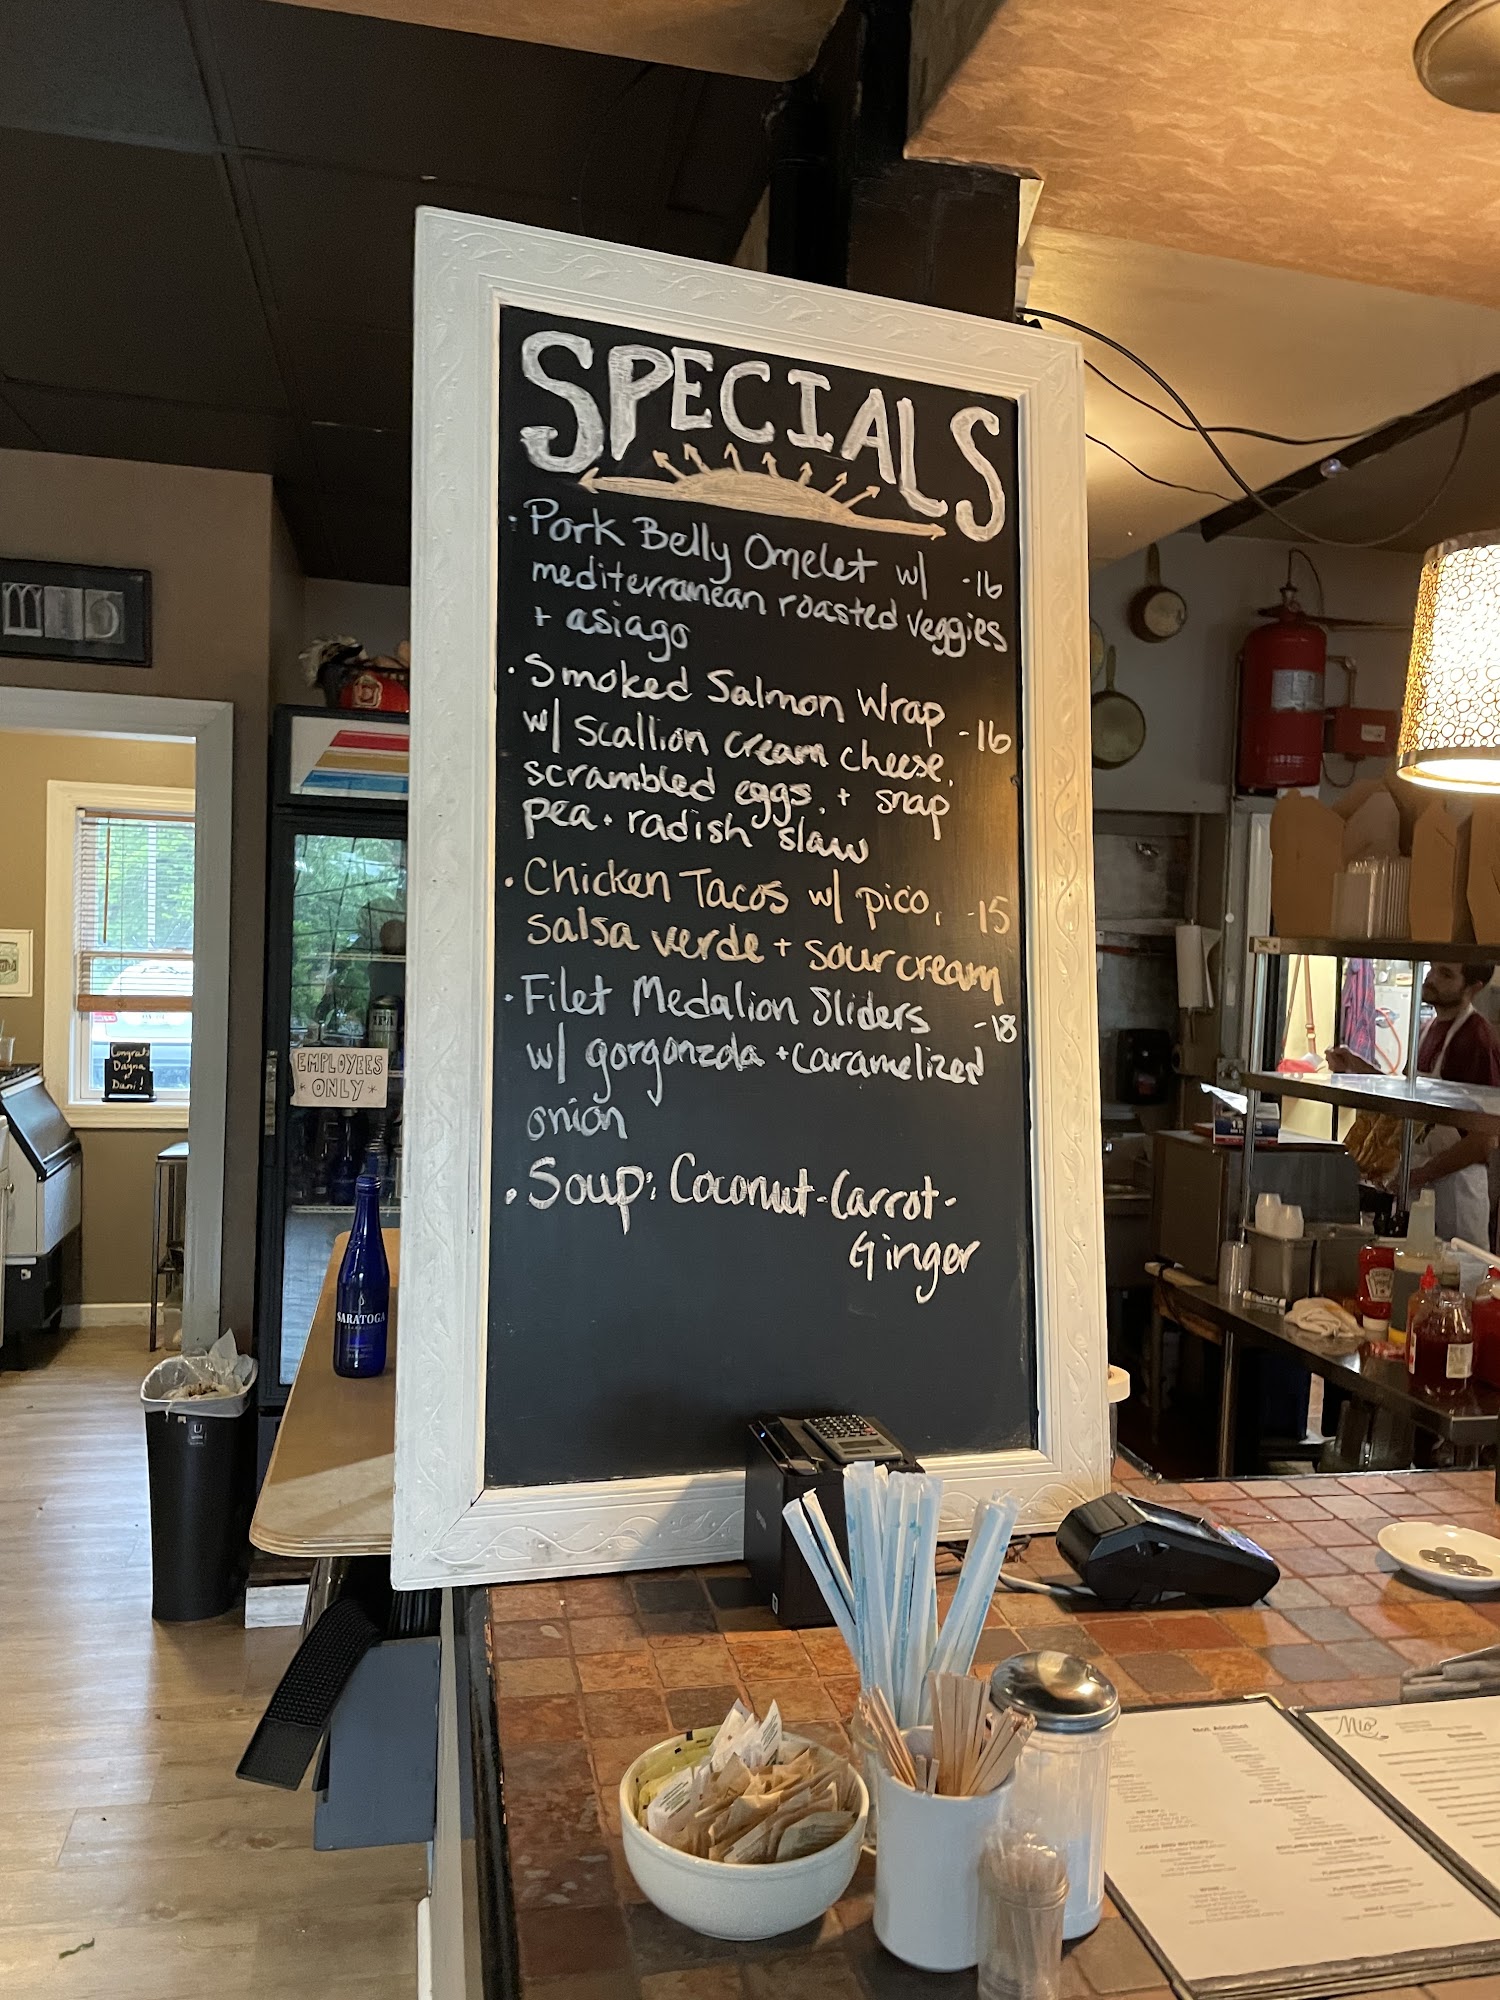 SPECIALS
· Pork Belly Omelet w/ -16
mediterranean roasted veggies
+ asiago
· Smoked Salmon Wrap -16
w/ scallion cream cheese,
scrambled eggs, + snap
pea · radish slaw
· Chicken Tacos w/ pico, -15
salsa verde + sour cream
· Filet Medalion Sliders -18
w/ gorgonzola + caramelized
onion
· Soup: Coconut-Carrot-
Ginger
EMPLOYEES
* ONLY *
Congrats
Dayna
+
Dani!
IPA
SARATOGA
Not Alcohol
Mio